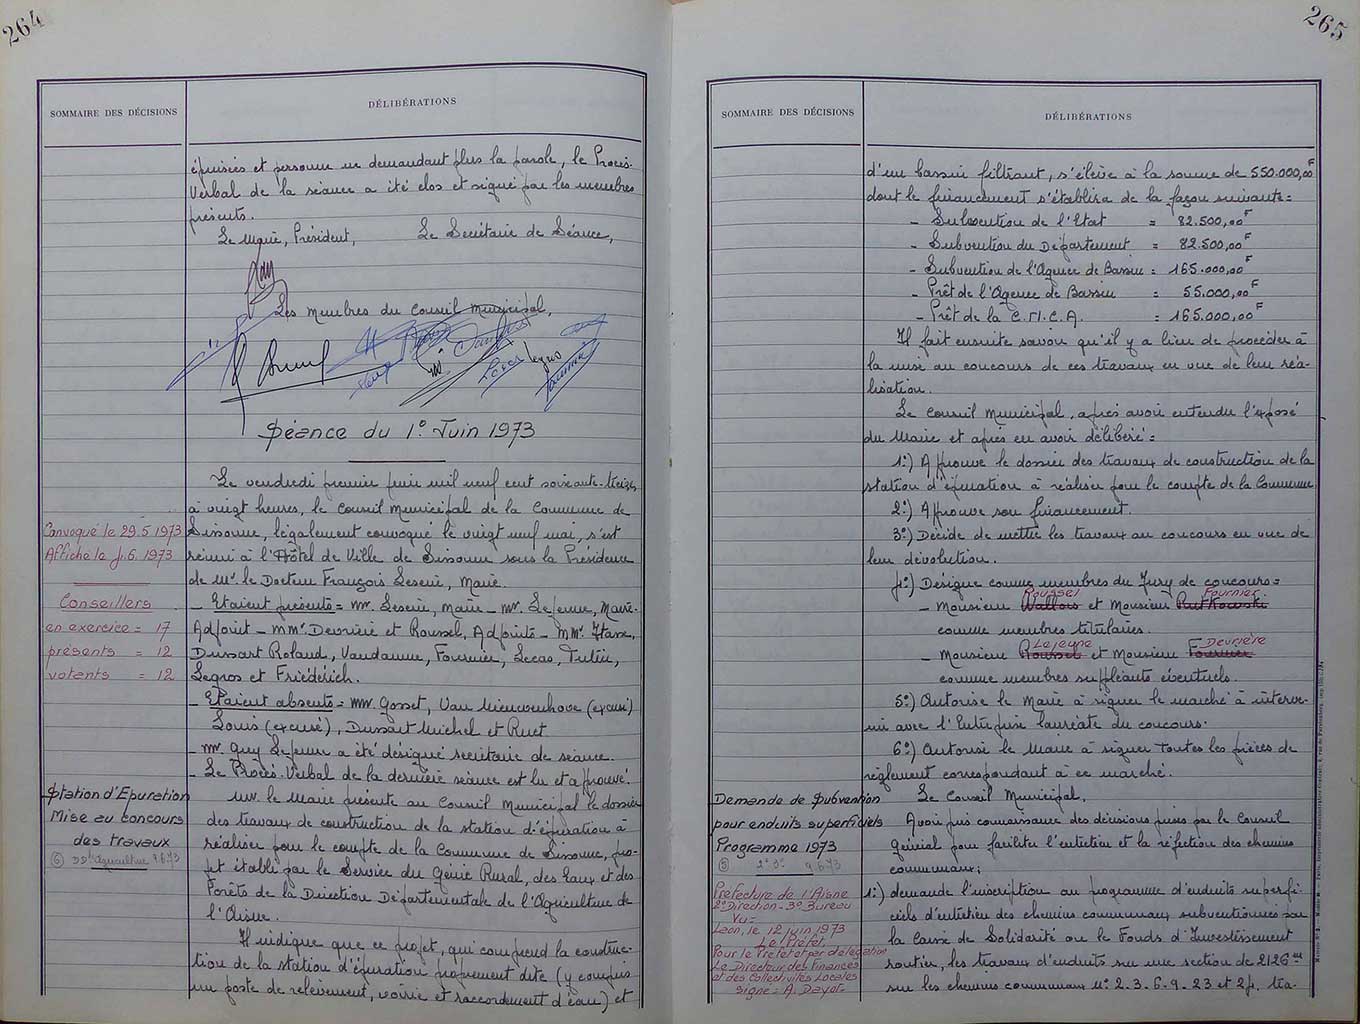 264
SOMMAIRE DES DÉCISIONS
DÉLIBÉRATIONS
épuisés et personne ne demandant plus la parole, le Procès-
Verbal de la séance a été clos et signé par les membres
présents.
Le Maire, Président, Le Secrétaire de Séance,
Les Membres du Conseil Municipal,
Séance du 1º Juin 1973
Le vendredi premier juin mil neuf cent soixante-treize,
à vingt heures, le Conseil Municipal de la Commune de
Convoqué le 29.5 1973
Sissonne, légalement convoqué le vingt neuf mai, s'est
Affiché le 4.6.1973
réuni à l'Hôtel de Ville de Sissonne sous la Présidence
de Mr. le Docteur François Leserie, Maire.
Conseillers
en exercice = 17
présents = 12
votants = 12
- Etaient présents = MM. Leserie, Maire - Mr. Lejeune, Maire-
Adjoint - MM. Devrière et Roussel, Adjoints - MM.
Dussart Roland, Vandamme, Fournier, Lecas,
Legros et Friédérich.
- Etaient absents = MM. Gosset, Van Nieuwenhove (excusé)
Louis (excusé), Dussart Michel et Ruet
- Mr. Guy Lejeune a été désigné secrétaire de séance.
- Le Procès-Verbal de la dernière séance est lu et approuvé.
Station d'Epuration
Mise au concours
des travaux
Mr. le Maire présente au Conseil Municipal le dossier
des travaux de construction de la station d'épuration à
réaliser pour le compte de la Commune de Sissonne, pro-
jet établi par le Service du Génie Rural, des Eaux et des
Forêts de la Direction Départementale de l'Agriculture de
l'Aisne.
Il indique que ce projet, qui comprend la construc-
tion de la station d'épuration proprement dite (y compris
un poste de relèvement, voirie et raccordement d'eau) et
265
SOMMAIRE DES DÉCISIONS
DÉLIBÉRATIONS
d'un bassin filtrant, s'élève à la somme de 550.000,00 F
dont le financement s'établira de la façon suivante =
- Subvention de l'Etat = 82.500,00 F
- Subvention du Département = 82.500,00 F
- Subvention de l'Agence de Bassin = 165.000,00 F
- Prêt de l'Agence de Bassin = 55.000,00 F
- Prêt de la C.M.C.A. = 165.000,00 F
Il fait ensuite savoir qu'il y a lieu de procéder à
la mise au concours de ces travaux en vue de leur réa-
lisation.
Le Conseil Municipal, après avoir entendu l'exposé
du Maire et après en avoir délibéré =
1º) Approuve le dossier des travaux de construction de la
station d'épuration à réaliser pour le compte de la Commune
2º) Approuve son financement.
3º) Décide de mettre les travaux au concours en vue de
leur dévolution.
4º) Désigne comme membres du Jury de concours =
Roussel Fournier
- Monsieur Wallois et Monsieur Rutkowski
comme membres titulaires.
Lejeune Devrière
- Monsieur Roussel et Monsieur Fournier
comme membres suppléants éventuels.
5º) Autorise le Maire à signer le marché à interve-
nir avec l'Entreprise lauréate du concours.
6º) Autorise le Maire à signer toutes les pièces de
règlement correspondant à ce marché.
Demande de Subvention
pour enduits superficiels
Programme 1973
Le Conseil Municipal,
Ayant pris connaissance des décisions prises par le Conseil
Général pour faciliter l'entretien et la réfection des chemins
communaux;
Préfecture de l'Aisne
2º Direction - 3º Bureau
Vu =
Laon, le 12 juin 1973
Le Préfet,
Pour le Préfet et par délégation
Le Directeur des Finances
et des Collectivités Locales
signé = A. Dayot.
1º) demande l'inscription au programme d'enduits superfi-
ciels d'entretien des chemins communaux subventionnés par
la Caisse de Solidarité ou le Fonds d'Investissement
routier, les travaux d'enduits sur une section de 2126 m
sur les chemins communaux nº 2.3.6.9.23 et 24, tra-